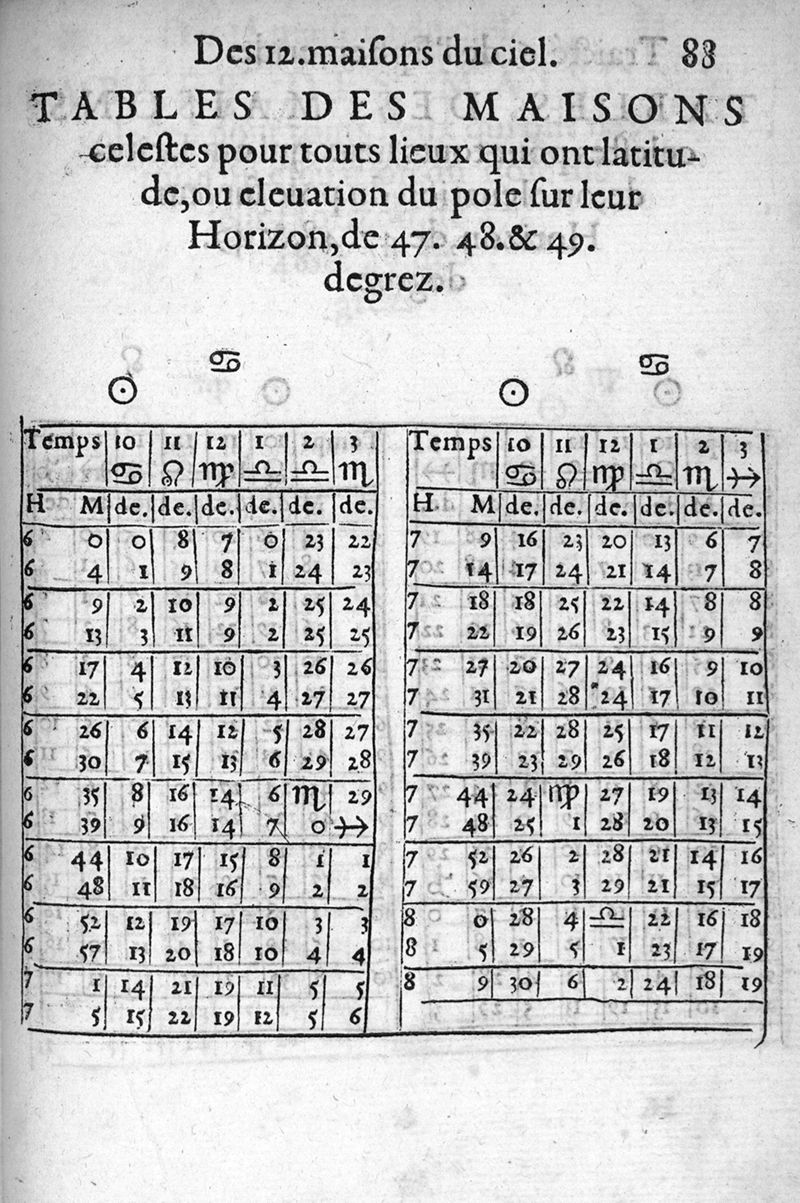 Des 12.maiſons du ciel. 88
TABLES DES MAISONS
celeſtes pour touts lieux qui ont latitu-
de,ou eleuation du pole ſur leur
Horizon,de 47. 48.& 49.
degrez.
☉ ♋
Temps 10 11 12 1 2 3
♋ ♌ ♍ ♎ ♎ ♏
H M de. de. de. de. de. de.
6 0 0 8 7 0 23 22
6 4 1 9 8 1 24 23
6 9 2 10 9 2 25 24
6 13 3 11 9 2 25 25
6 17 4 12 10 3 26 26
6 22 5 13 11 4 27 27
6 26 6 14 12 5 28 27
6 30 7 15 13 6 29 28
6 35 8 16 14 6 ♏ 29
6 39 9 16 14 7 0 ♐
6 44 10 17 15 8 1 1
6 48 11 18 16 9 2 2
6 52 12 19 17 10 3 3
6 57 13 20 18 10 4 4
7 1 14 21 19 11 5 5
7 5 15 22 19 12 5 6
☉ ♋
Temps 10 11 12 1 2 3
♋ ♌ ♍ ♎ ♏ ♐
H M de. de. de. de. de. de.
7 9 16 23 20 13 6 7
7 14 17 24 21 14 7 8
7 18 18 25 22 14 8 8
7 22 19 26 23 15 9 9
7 27 20 27 24 16 9 10
7 31 21 28 24 17 10 11
7 35 22 28 25 17 11 12
7 39 23 29 26 18 12 13
7 44 24 ♍ 27 19 13 14
7 48 25 1 28 20 13 15
7 52 26 2 28 21 14 16
7 59 27 3 29 21 15 17
8 0 28 4 ♎ 22 16 18
8 5 29 5 1 23 17 19
8 9 30 6 2 24 18 19